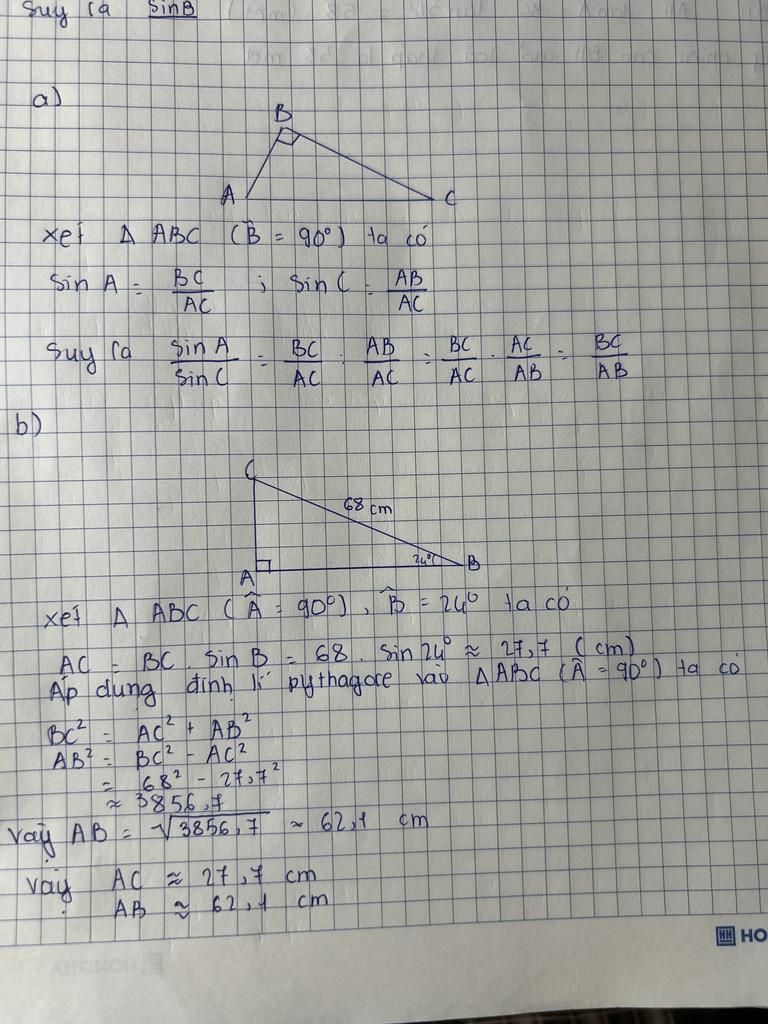 Suy ra sinB
a)
B
A C
xét Δ ABC (B̂ = 90°) ta có
Sin A = BC/AC ; Sin C = AB/AC
Suy ra Sin A/Sin C = BC/AC : AB/AC = BC/AC . AC/AB = BC/AB
b)
C
68 cm
24°
A B
xét Δ ABC (Â = 90°), B̂ = 24° ta có
AC = BC . Sin B = 68 . Sin 24° ≈ 27,7 (cm)
Áp dụng định lí pythagore vào Δ ABC (Â = 90°) ta có
BC² = AC² + AB²
AB² = BC² - AC²
= 68² - 27,7²
≈ 3856,7
Vậy AB = √3856,7 ≈ 62,1 cm
Vậy AC ≈ 27,7 cm
AB ≈ 62,1 cm
HO